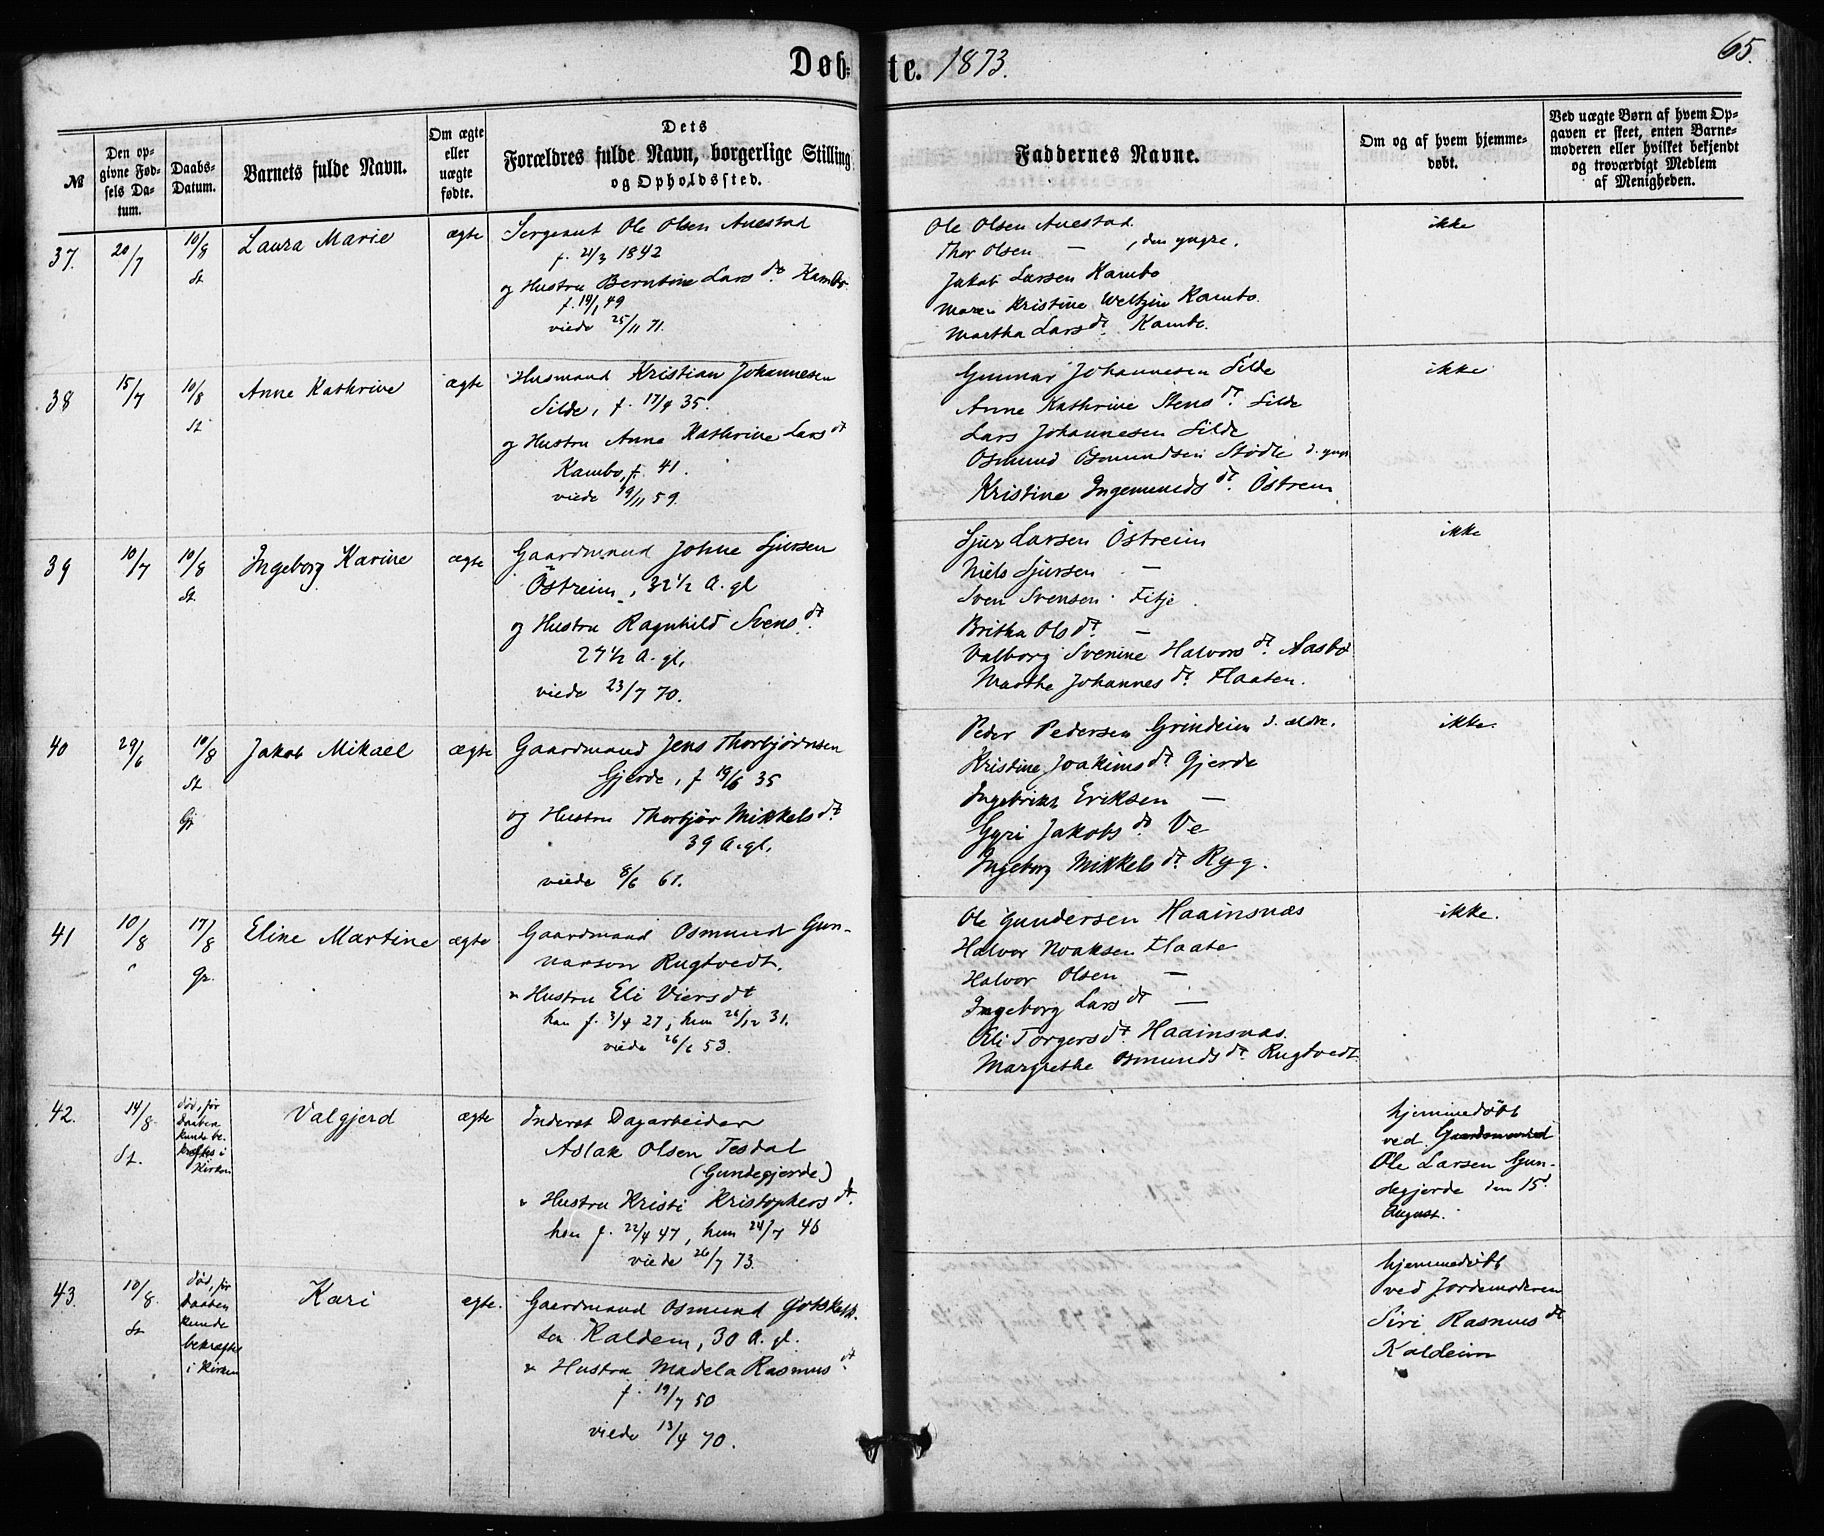 Døb-te. 1873.
65.
№
Den opgivne Fødsels Datum.
Daabs-Datum.
Barnets fulde Navn.
Om ægte eller uægte fødte.
Dets Forældres fulde Navn, borgerlige Stilling og Opholdssted.
Faddernes Navne.
Om og af hvem hjemmedøbt.
Ved uægte Børn af hvem Opgaven er skeet, enten Barnemoderen eller hvilket bekjendt og troværdigt Medlem af Menigheden.
37. 20/7 10/8 St Laura Marie ægte
Sergeant Ole Olsen Auestad
f. 21/3 1842
og Hustru Berntine Lars dt Kambo
f. 19/1 49
viede 25/11 71.
Ole Olsen Auestad
Thor Olsen — , den yngre.
Jakob Larsen Kambo
Maren Kristine Weltzin Kambo.
Martha Lars dt. Kambo.
ikke
38 15/7 10/8 St Anne Kathrine ægte
Husmand Kristian Johannesen
Silde, f. 17/9 35.
og Hustru Anne Kathrine Lars dt
Kambo, f. 41.
viede 19/11 59.
Gunnar Johannesen Silde
Anne Kathrine Stens dt. Silde
Lars Johannesen Silde
Osmund Osmundsen Stødle d. yngr
Kristine Ingemunds dt. Östrem
ikke
39 10/7 10/8 St. Ingeborg Karine ægte
Gaardmand Johne Sjursen
Östreim, 32 1/2 A. gl
og Hustru Ragnhild Svens dt.
27 1/2 A. gl.
viede 23/7 70.
Sjur Larsen Östreim
Niels Sjursen —
Sven Svensen Fitje.
Britha Ols dt. —
Valborg Svenine Halvors dt. Aasbø
Marthe Johannes dt. Flaaten.
ikke
40 29/6 10/8 St. Gr Jakob Mikael ægte
Gaardmand Jens Thorbjørnsen
Gjerde, f 19/6 35
og Hustru Thorbjør Mikkels dt.
39 A. gl.
viede 8/6 61.
Peder Pedersen Grindeim d. ældre.
Kristine Joakims dt. Gjerde
Ingebrikt Eriksen —
Gyri Jakobs dt. Ve
Ingeborg Mikkels dt. Ryg.
ikke.
41 10/8 17/8 Gr. Eline Martine ægte
Gaardmand Osmund Gun-
narson Rugtvedt.
& Hustru Eli Viers dt
han f. 3/4 27, hun 26/12 31.
viede 26/6 53.
Ole Gundersen Haainsnæs
Halvor Noaksen Flaate
Halvor Olsen —
Ingeborg Lars dt —
Eli Torgers dt. Haainsnæs.
Margrethe Osmunds dt. Rugtvedt.
ikke.
42. 14/8 St. død, før Daaben kunde bekræftes i Kirken Valgjerd ægte
Inderst Dagarbeider
Aslak Olsen Tesdal
(Gundegjerde)
& Hustru Kristi Kristophers dt.
han f. 22/4 47, hun 24/7 46
viede 26/7 73.
hjemmedøbt
ved Gaardmand
Ole Larsen Gun-
degjerde den 15d
August.
43. 10/8. St død, før Daaben kunde bekræfte i Kirken Kari ægte.
Gaardmand Osmund
sen Kaldem, 30 A. gl.
& Hustru Madela Rasmus dt.
f. 19/7 50
viede 13/4 70.
hjemmedøbt
ved Jordemoderen
Siri Rasmus dt
Kaldeim